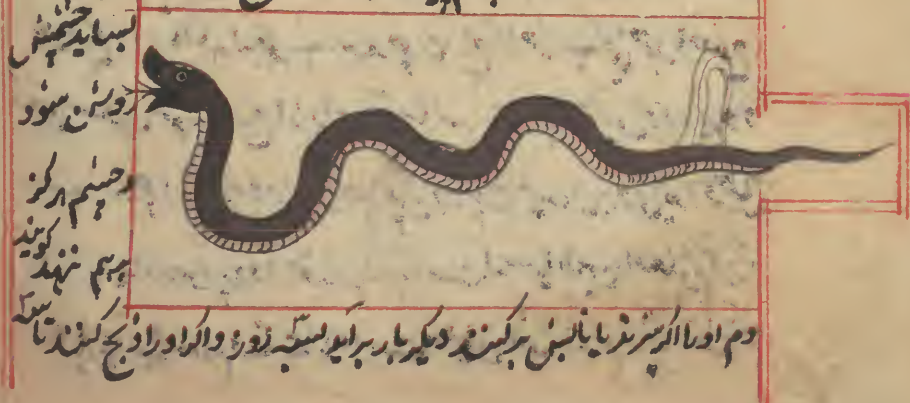 بساید چشمش
روشن شود
و چشم هرگز
برهم ننهد کویند
دم او را اگر ببرند یا نابش برکنند دیگر بار براید بسه روز و اگر او را ذبح کنند تا سه